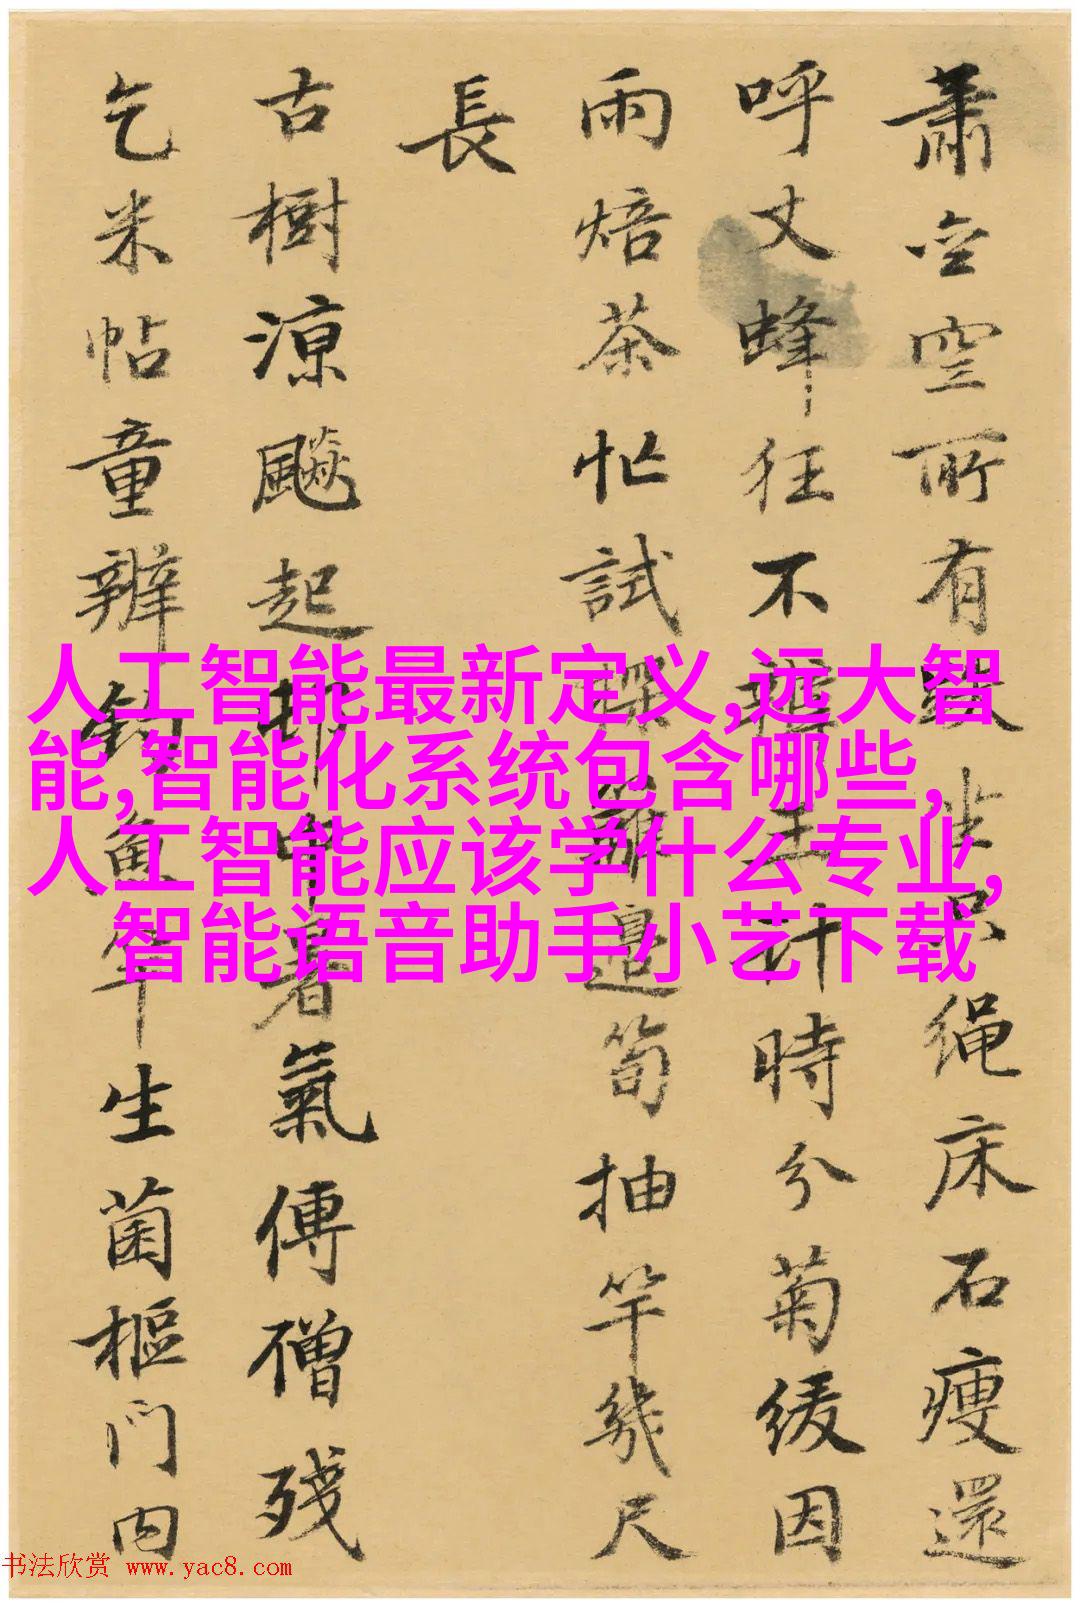 蕭仝空所有 坐只绳床石瘦還
呼丈蜂狂不 時分菊緩因
雨焙茶忙試 邉笋抽竿幾尺
長
古樹凉飈起 中暑氣傳僧残
乞米帖童辨 生菌樞門内
人工智能最新定义,远大智
能,智能化系统包含哪些,
人工智能应该学什么专业,
智能语音助手小艺下载
书法欣赏 www.yac8.com